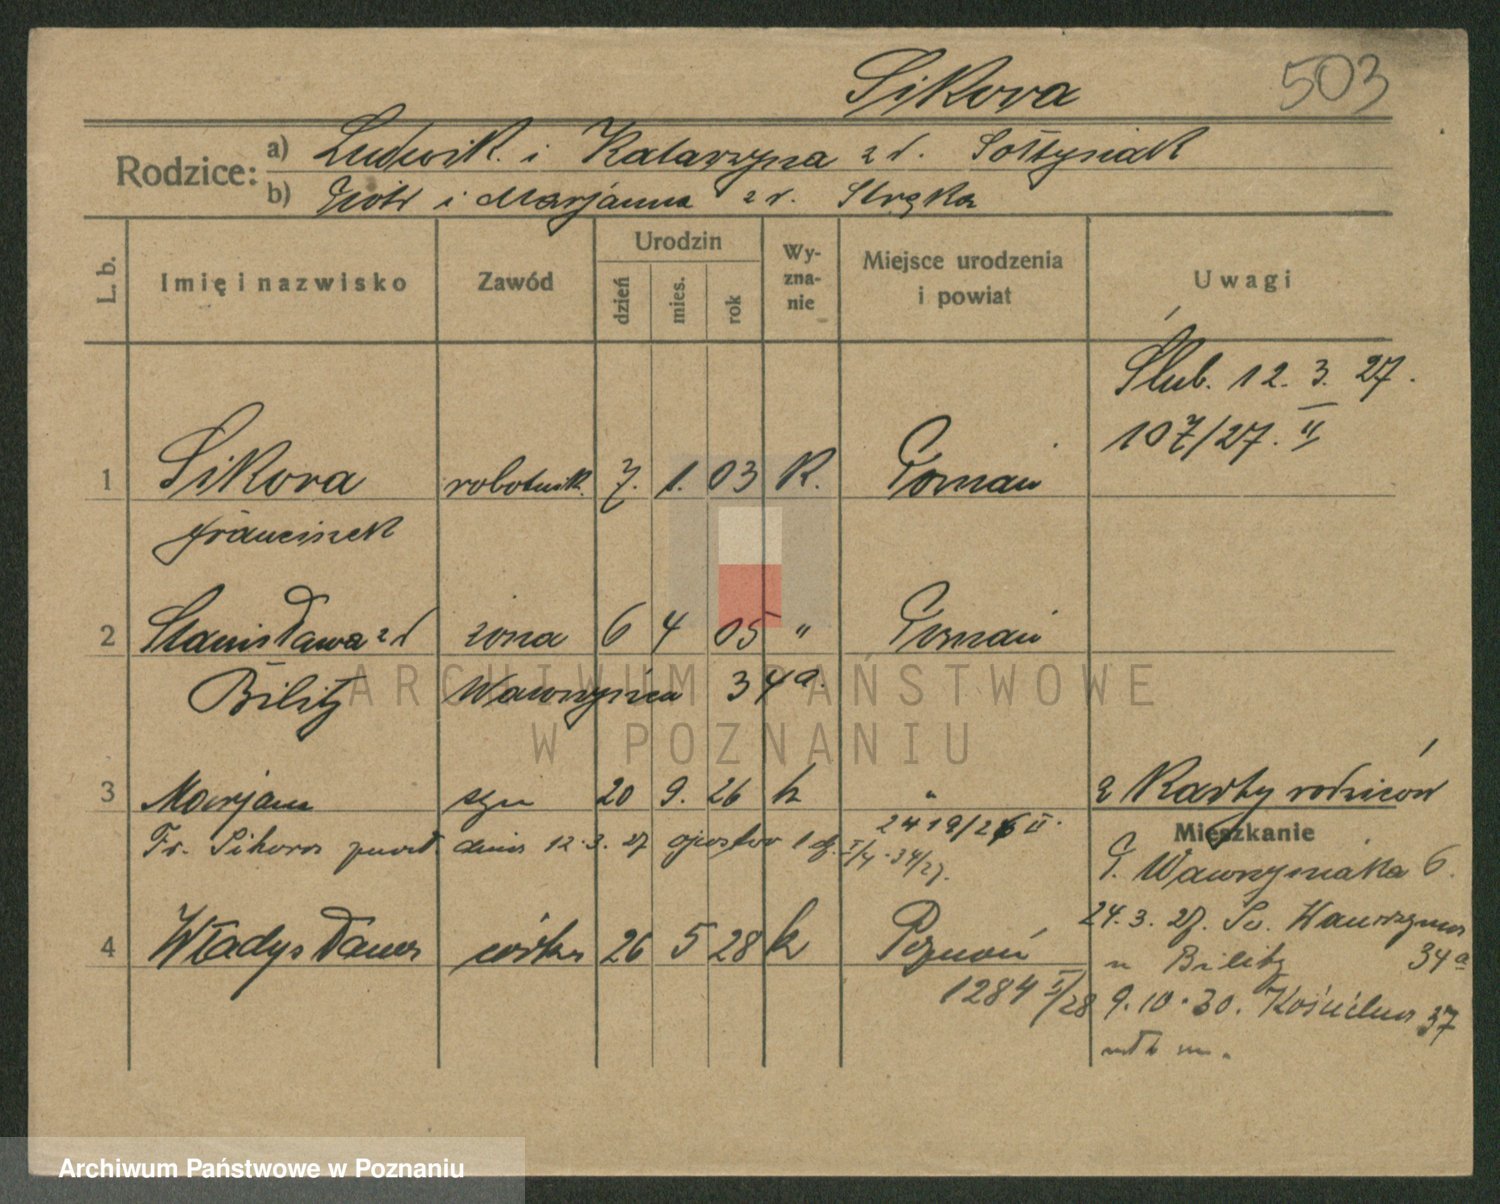 Sikora 503
Rodzice: a) Ludwik i Katarzyna z d. Sołtysiak
b) Piotr i Marjanna z d. Strąka
L. b. Imię i nazwisko Zawód Urodzin dzień mies. rok Wy-zna-nie Miejsce urodzenia i powiat Uwagi
Ślub. 12. 3. 27.
107/27. II
1 Sikora robotnik 7. 1. 03 K. Poznań
Franciszek
2 Stanisława z d żona 6 4 05 " Poznań
Bilitz Wawrzyńca 34a.
ARCHIWUM PAŃSTWOWE
W POZNANIU
3 Marjan syn 20 9. 26 k " z Karty rodziców
2419/26 II.
Mieszkanie
Fr. Sikora dnia 12. 3. 27 34/27.
G. Wawrzyniaka 6.
24. 3. 27. Św. Wawrzyńca
4 Władysława córka 26 5 28 k Poznań
u Bilitz 34a
1284 II/28
9. 10. 30. Kościelna 37
Archiwum Państwowe w Poznaniu